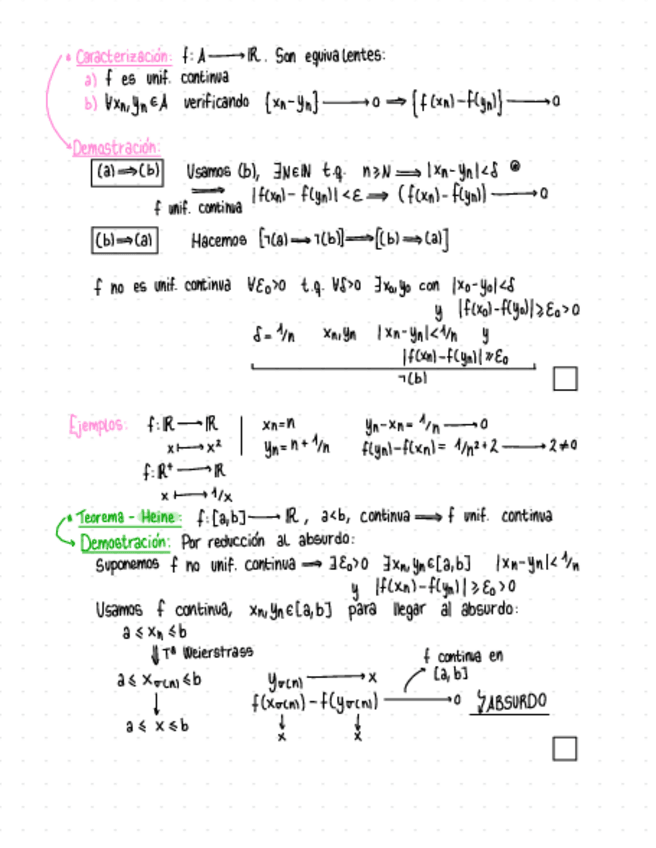 • Caracterización: f: A ⟶ ℝ. Son equivalentes:
a) f es unif. continua
b) ∀xn, yn ∈ A verificando {xn-yn} ⟶ 0 ⟹ {f(xn)-f(yn)} ⟶ 0
Demostración:
(a) ⟹ (b) Usamos (b), ∃N∈ℕ t.q. n≥N ⟹ |xn-yn|<δ
⟹ f unif. continua |f(xn)-f(yn)|<ε ⟹ (f(xn)-f(yn)) ⟶ 0
(b) ⟹ (a) Hacemos [¬(a) ⟹ ¬(b)] ⟹ [(b) ⟹ (a)]
f no es unif. continua ∀ε₀>0 t.q. ∀δ>0 ∃x₀,y₀ con |x₀-y₀|<δ
y |f(x₀)-f(y₀)|≥ε₀>0
δ=1/n xn,yn |xn-yn|<1/n y
|f(xn)-f(yn)|≥ε₀
¬(b)
Ejemplos: f: ℝ ⟶ ℝ | xn=n yn-xn=1/n ⟶ 0
x ⟼ x² | yn=n+1/n f(yn)-f(xn)=1/n²+2 ⟶ 2≠0
f: ℝ⁺ ⟶ ℝ
x ⟼ 1/x
• Teorema - Heine: f: [a,b] ⟶ ℝ, a<b, continua ⟹ f unif. continua
Demostración: Por reducción al absurdo:
Suponemos f no unif. continua ⟹ ∃ε₀>0 ∃xn,yn∈[a,b] |xn-yn|<1/n
y |f(xn)-f(yn)|≥ε₀>0
Usamos f continua, xn,yn∈[a,b] para llegar al absurdo:
a ≤ xn ≤ b
⇓ Tª Weierstrass f continua en
a ≤ xσ(n) ≤ b yσ(n) ⟶ x [a,b]
↓ f(xσ(n))-f(yσ(n)) ⟶ 0 ↯ABSURDO
a ≤ x ≤ b ↓ x ↓ x